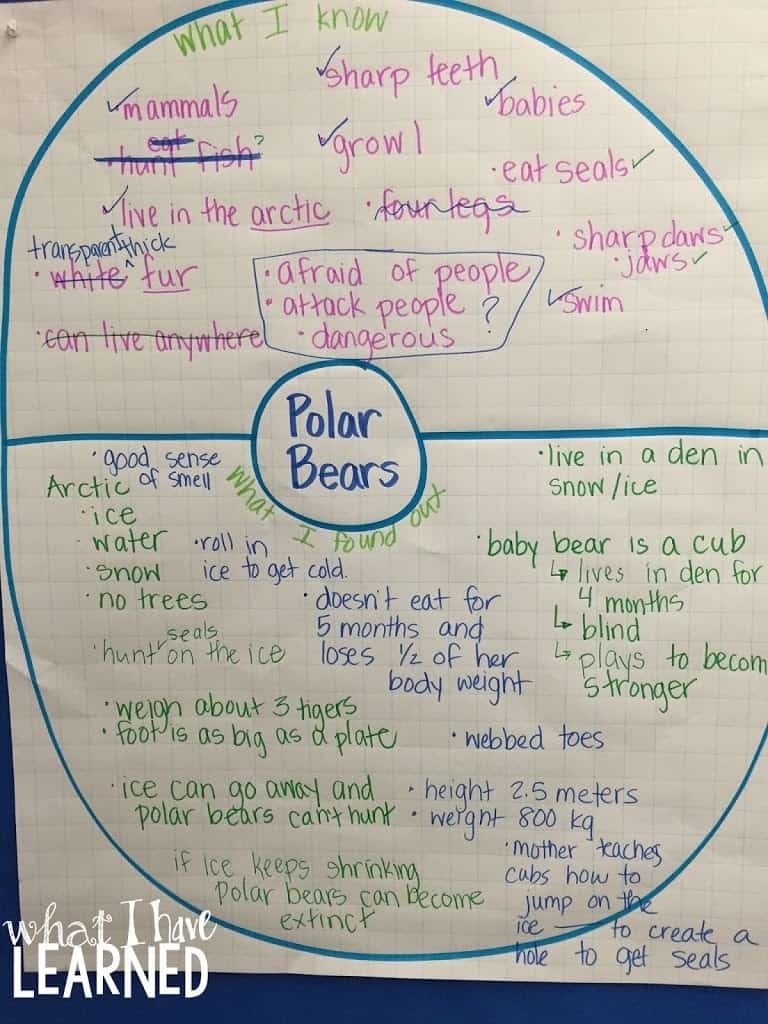 what I know
✓sharp teeth
✓mammals
✓babies
eat
· hunt fish?
✓growl
· eat seals✓
✓live in the arctic
· four legs
· sharp claws✓
· jaws✓
transparent thick
· white ^ fur
· afraid of people
· attack people ?
· dangerous
✓swim
· can live anywhere
Polar
Bears
what I found out
· good sense
of smell
Arctic
· ice
· water
· snow
· no trees
seals
· hunt ✓ on the ice
· roll in
ice to get cold.
· doesn't eat for
5 months and
loses ½ of her
body weight
· live in a den in
snow/ice
· baby bear is a cub
↳ lives in den for
4 months
↳ blind
↳ plays to becom
stronger
· weigh about 3 tigers
· foot is as big as a plate
· webbed toes
· ice can go away and
polar bears can't hunt
· height 2.5 meters
· weight 800 kg
if ice keeps shrinking
polar bears can become
extinct
· mother teaches
cubs how to
jump on the
ice — to create a
hole to get seals
what I have
LEARNED